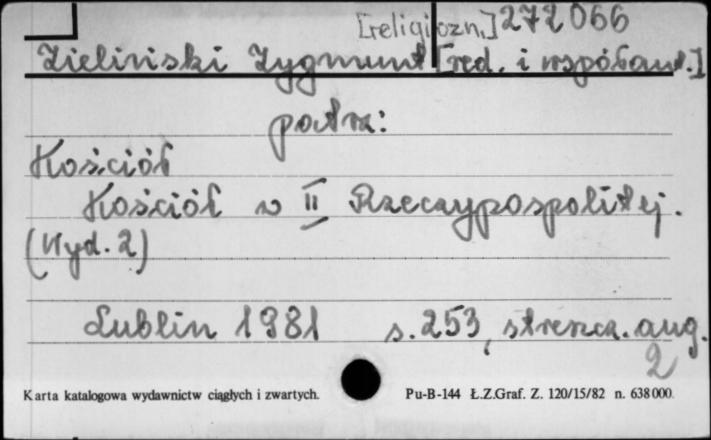 [religiozn.] 272 066
Zieliński Zygmunt [red. i współaut.]
patrz:
Kościół
Kościół w II Rzeczypospolitej.
(Wyd. 2)
Lublin 1981 s. 253, streszcz. ang.
2
Karta katalogowa wydawnictw ciągłych i zwartych. Pu-B-144 Ł.Z.Graf. Z. 120/15/82 n. 638 000.